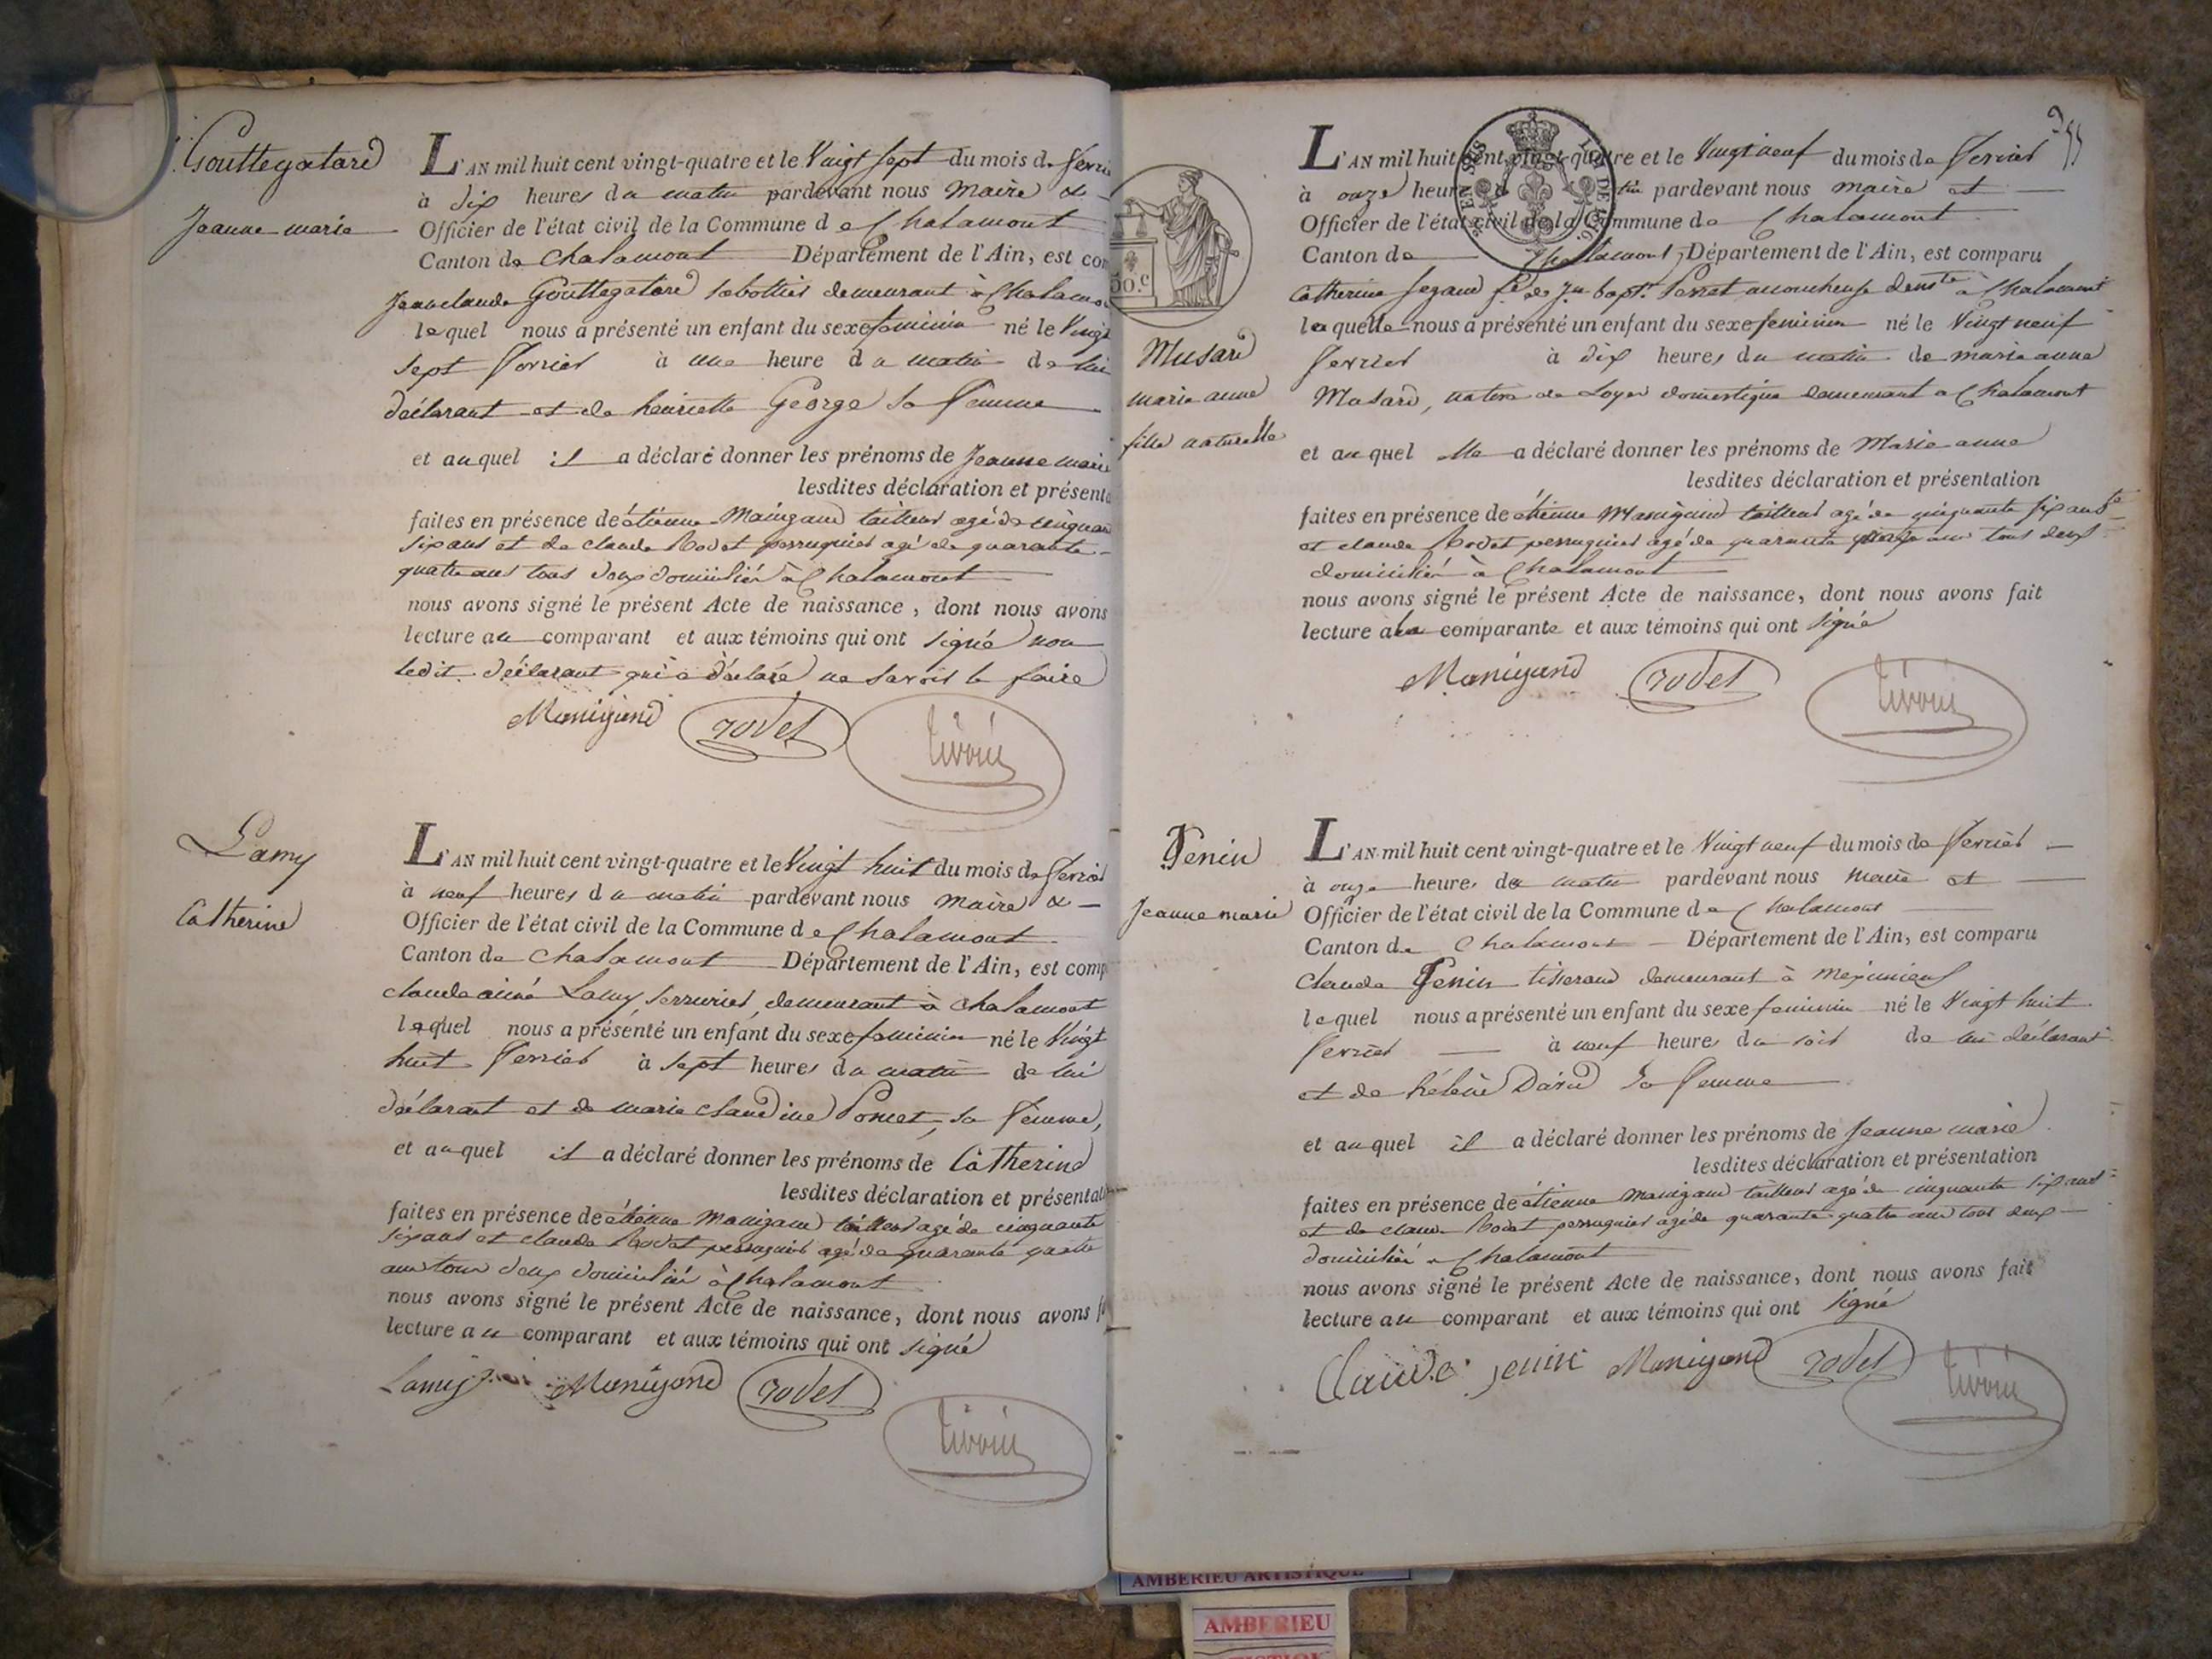 Gouttegatard
Jeanne marie
L'AN mil huit cent vingt-quatre et le Vingt sept du mois de fevrie
à dix heures du matin pardevant nous Maire &
Officier de l'état civil de la Commune de Chalamont
Canton de Chalamont Département de l'Ain, est com
Jean claude Gouttegatard sabottier demeurant à Chalamo
lequel nous a présenté un enfant du sexe feminin né le Vingt
sept fevrier à une heure du matin de lui
déclarant et de henriette George sa femme
et auquel il a déclaré donner les prénoms de Jeanne marie
lesdites déclaration et présenta
faites en présence de étienne Manigand tailleur agé de cinquan
six ans et de claude Rodet perruquier agé de quarante
quatre ans tous deux domiciliés à Chalamont
nous avons signé le présent Acte de naissance, dont nous avons
lecture au comparant et aux témoins qui ont signé non
ledit déclarant qui a déclaré ne savoir le faire
Manigand rodet
Lamy
Catherine
L'AN mil huit cent vingt-quatre et le Vingt huit du mois de fevrier
à neuf heures du matin pardevant nous maire &
Officier de l'état civil de la Commune de Chalamont
Canton de Chalamont Département de l'Ain, est comp
claude aimé Lamy, serrurier, demeurant à Chalamont
lequel nous a présenté un enfant du sexe feminin né le Vingt
huit fevrier à sept heures du matin de lui
déclarant et de marie claudine Poncet, sa femme,
et auquel il a déclaré donner les prénoms de Catherine
lesdites déclaration et présentat
faites en présence de étienne Manigand tailleur agé de cinquante
six ans et claude Rodet perruquier agé de quarante quatre
ans tous deux domiciliés à Chalamont
nous avons signé le présent Acte de naissance, dont nous avons f
lecture au comparant et aux témoins qui ont signé
Lamy Manigand rodet
50.c
Musard
marie anne
fille naturelle
L'AN mil huit cent vingt-quatre et le Vingt neuf du mois de fevrier
à onze heures pardevant nous maire et
Officier de l'état civil de la Commune de Chalamont
Canton de Chalamont, Département de l'Ain, est comparu
Catherine fe de jn bapt. Perret accoucheuse demte à Chalamont
laquelle nous a présenté un enfant du sexe feminin né le Vingt neuf
fevrier à dix heures du matin de marie anne
Musard, native de Loyes domestique demeurant a Chalamont
et auquel elle a déclaré donner les prénoms de Marie anne
lesdites déclaration et présentation
faites en présence de étienne Manigand tailleur agé de cinquante six ans
et claude Rodet perruquier agé de quarante quatre ans tous deux
domiciliés à Chalamont
nous avons signé le présent Acte de naissance, dont nous avons fait
lecture à la comparante et aux témoins qui ont signé
Manigand rodet
Jenin
Jeanne marie
L'AN mil huit cent vingt-quatre et le Vingt neuf du mois de fevrier
à onze heures du matin pardevant nous maire et
Officier de l'état civil de la Commune de Chalamont
Canton de Chalamont Département de l'Ain, est comparu
claude Jenin tisserand demeurant à meximieux
lequel nous a présenté un enfant du sexe feminin né le Vingt huit
fevrier à neuf heures du soir de lui déclarant
et de hélène David sa femme
et auquel il a déclaré donner les prénoms de Jeanne marie
lesdites déclaration et présentation
faites en présence de étienne manigand tailleur agé de cinquante six ans
et de claude Rodet perruquier agé de quarante quatre ans tous deux
domiciliés a Chalamont
nous avons signé le présent Acte de naissance, dont nous avons fait
lecture au comparant et aux témoins qui ont signé
Claude jenin Manigand rodet
AMBERIEU ARTISTIQUE
AMBERIEU